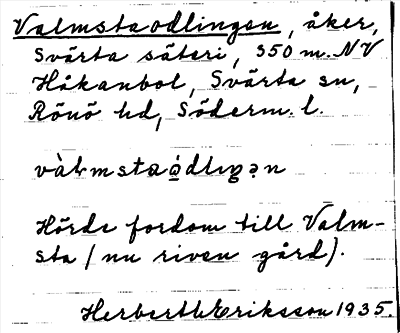 Valmstaodlingen, åker,
Svärta säteri, 350 m. NV
Håkanbol, Svärta sn,
Rönö hd, Söderm. l.
vàlmstaòdlıŋən
Hörde fordom till Valm-
sta (nu riven gård).
Herbert W Eriksson 1935.